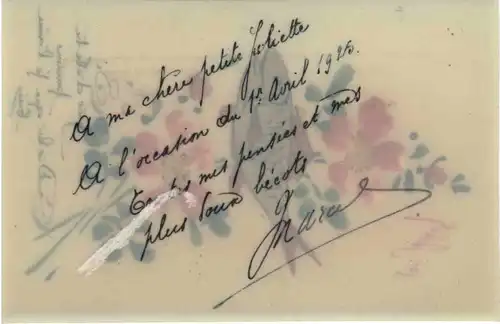 A ma chère petite Joliette
A l'occasion du 1er Avril 1925.
Toutes mes pensées et mes
plus doux bécots
Marcel